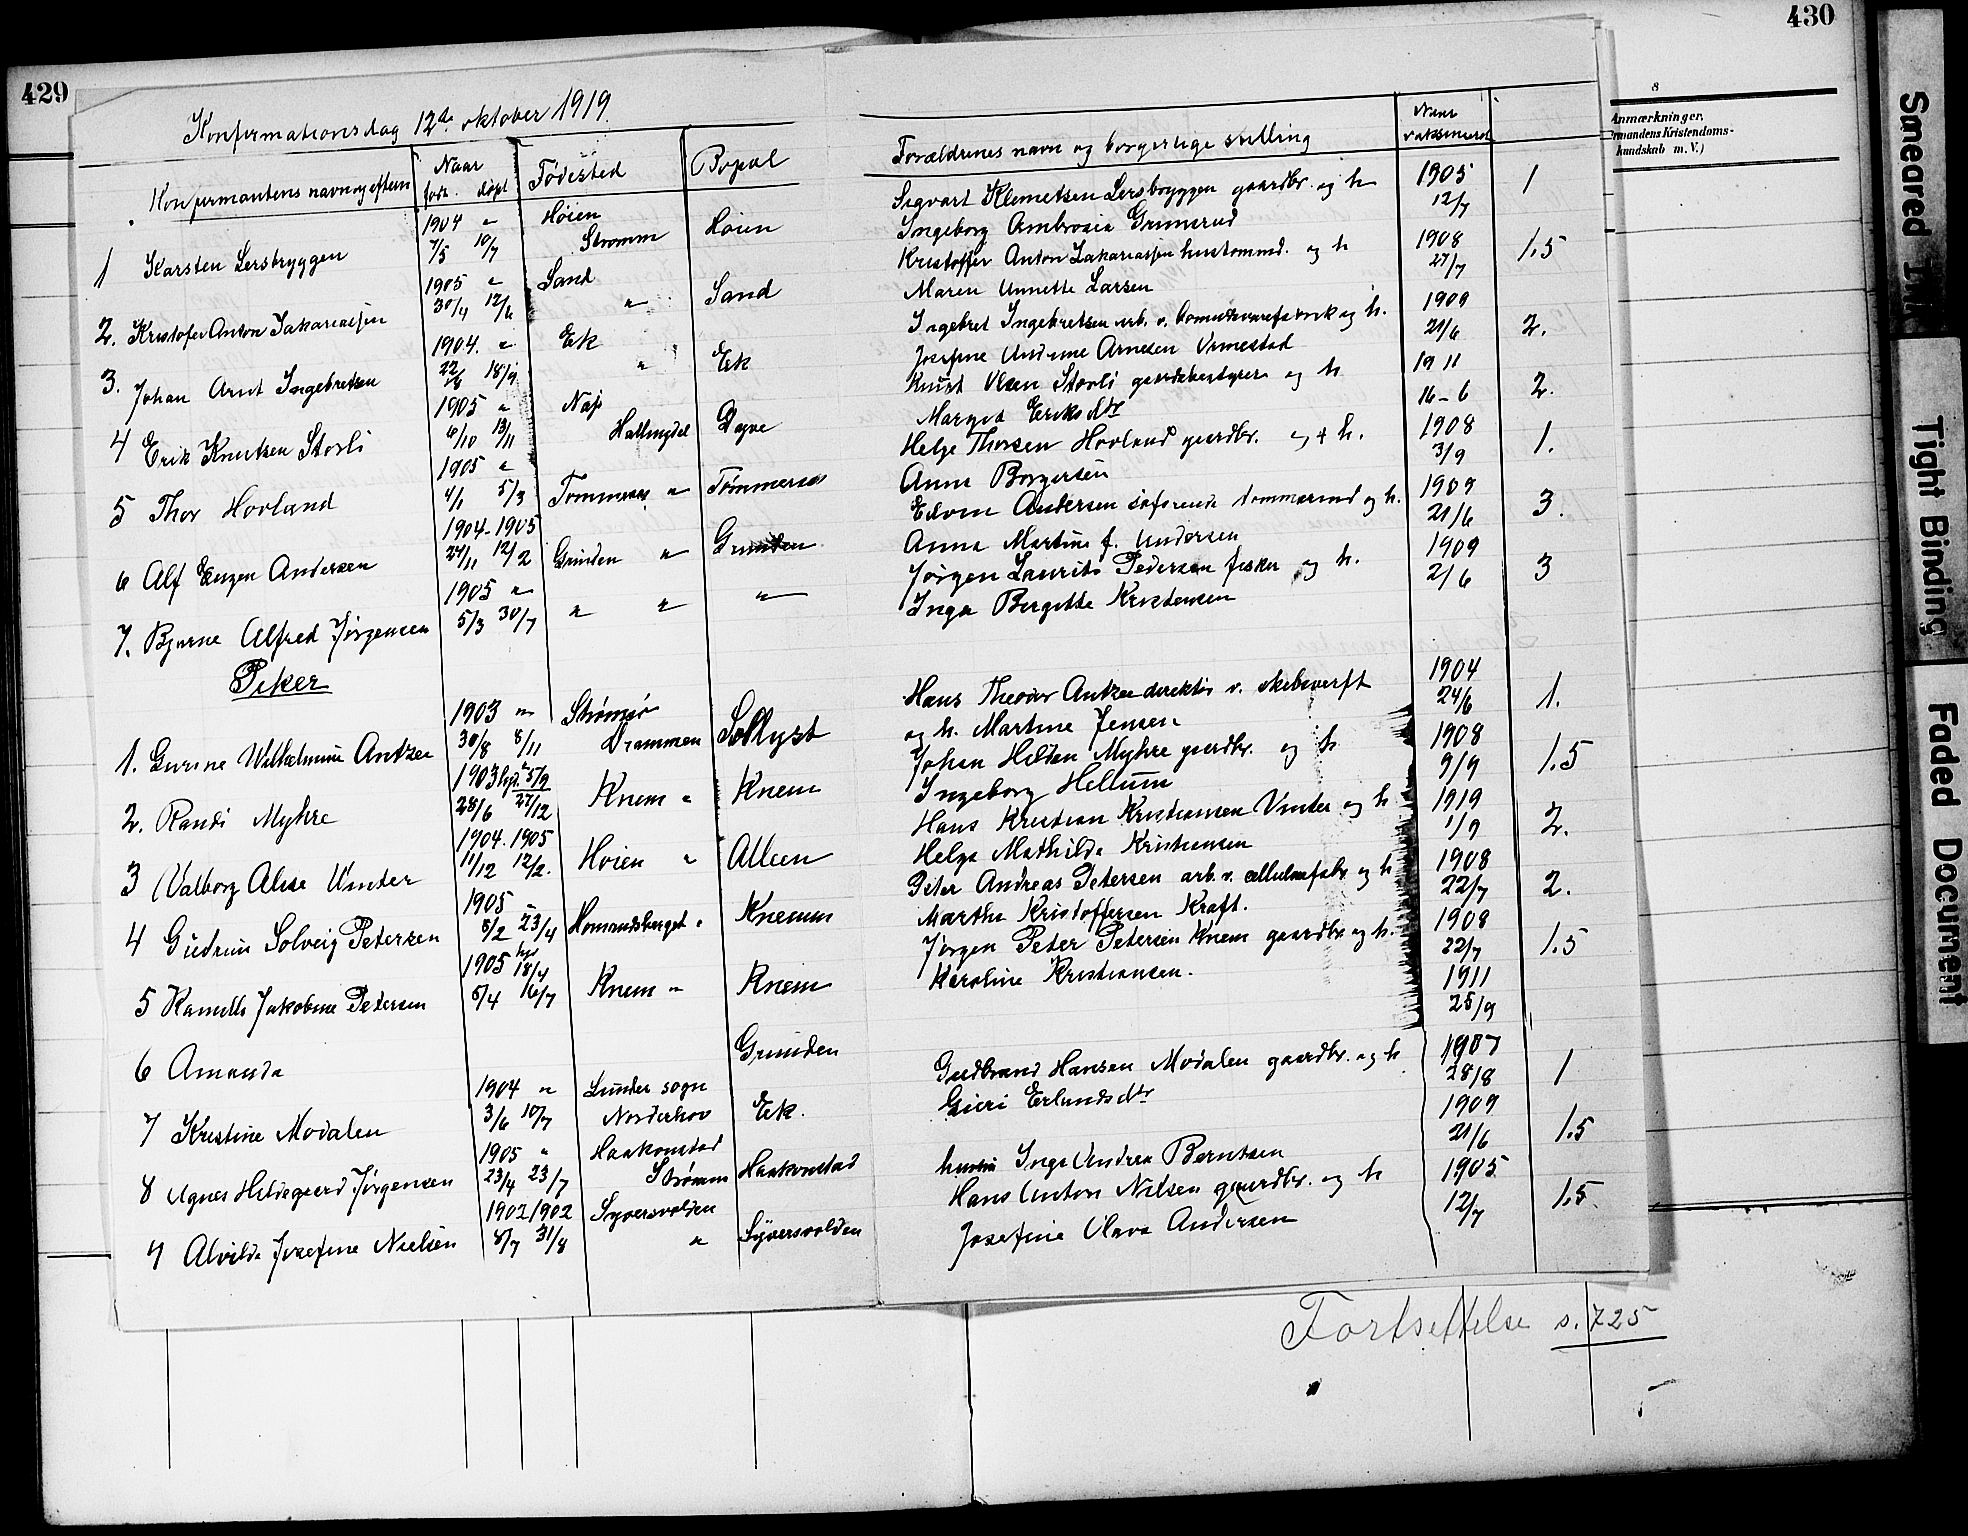 429
430
Konfirmationsdag 12de oktober 1919.
Konfirmantens navn og efternavn
Naar
født. døpt
Fødested
Bopæl
Forældrenes navn og borgerlige stilling
Naar
vaksinert
8
Anmærkninger.
kundskab m. V.)
1 Karsten Lersbryggen 1904 " 7/5 10/7 Høien Strømm Høien
Sigvart Klemetsen Lersbryggen gaardbr. og h 1905 12/7 1
Ingeborg Ambrosia Grimsrud
2. Kristofer Anton Zakariassen 1905 " 30/4 12/6 Sand " Sand
Kristoffer Anton Zakariassen hustømmd. og h 1908 27/7 1.5
Maren Annette Larsen
3. Johan Arnt Ingebretsen 1904. " 22/6 18/9 Ek " Ek
Ingebret Ingebretsen arb. v. og h. 1909 21/6 2.
Josefine Andrine Arnesen
4 Erik Knutsen Storli 1905 " 6/10 13/11 Næs Hallingdal
Knut Olsen Storli gaardsbestyrer og h 1911 16-6 2.
Margit Eriksdtr
5 Thor Hovland 1905 " 4/1 5/3 Tømmeraas " Tømmeraas
Helge Thorsen Hovland gaardbr. og h. 1908 3/9 1.
Anne Borgersen
6 Alf Eugen Andersen 1904-1905 24/11 12/2 Grinden " Grinden
Edvin Andersen tømmermd og h. 1909 21/6 3.
Anna Martine f. Andersen
7. Bjarne Alfred Jørgensen 1905 " 5/3 30/7 " " "
Jørgen Laurits Pedersen fisker og h. 1909 2/6 3
Inga Bergitte Kristensen
Piker
1. Gurine Wilhelmine Antzee 1903 " 30/8 8/11 Strømsø Drammen Sollyst
Hans Theodor Antzee direktør v. skibsverft 1904 24/6 1.
og h. Martine Jensen
2. Randi Myhre 1903 hjd. 5/9 28/6 27/12 Knem " Knem
Johan Hilden Myhre gaardbr. og h 1908 9/9 1.5
Ingeborg Hellum
3 Valborg Alise Vinter 1904. 1905 11/12 12/2. Høien " Alleen
Hans Kristian Kristiansen Vinter og h 1919 1/9 2.
Helga Mathilde Kristiansen
4 Gudrun Solveig Petersen 1905 " 8/2 23/4 Homansberget " Knemm
Peter Andreas Petersen arb. v. cellulosefabr. og h 1908 22/7 2.
Marthe Kristoffersen Kraft.
5 Kamilla Jakobine Petersen 1905 hjd 18/4 5/4 16/7 Knem " Knem
Jørgen Peter Petersen Knem gaardbr. og h. 1908 22/7 1.5
Karoline Kristiansen.
6 Amanda Grinden 1911 25/9
7 Kristine Modalen 1904 " 3/6 10/7 Lunder sogn Norderhov Ek.
Gudbrand Hansen Modalen gaardbr. og h 1907 28/8 1
Guri Erlandsdtr
8 Agnes Hildegaard Jørgensen 1905 " 23/4 23/7 Haakonstad Strømm Haakonstad
Inga Andrea Berntsen 1909 21/6 1.5
9 Alvilda Josefine Nielsen 1902/1902 8/7 31/8 Syversvolden " Syversvolden
Hans Anton Nilsen gaardbr. og h 1905 12/7 1.5
Josefine Olava Andersen
Fortsettelse s. 725
Smeared Ink
Tight Binding
Faded Document